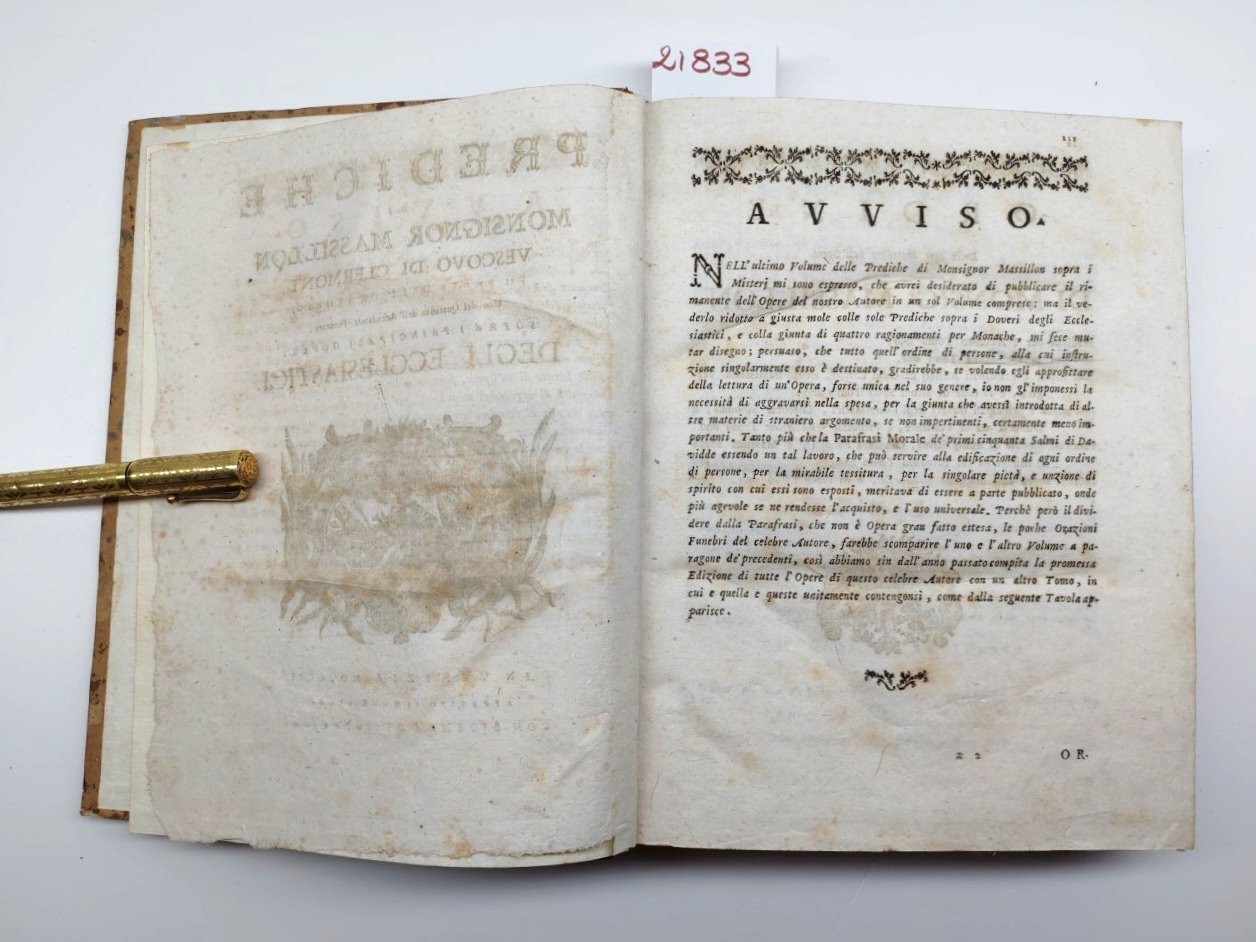 21833
PREDICHE
DI
MONSIGNOR MASSILLON
VESCOVO DI CLERMONT
Uno dei Quaranta dell'Accademia Francese
SOPRA I PRINCIPALI DOVERI
DEGLI ECCLESIASTICI
IN VENEZIA
iii
AVVISO.
NELL'ultimo Volume delle Prediche di Monsignor Massillon sopra i
Misterj mi sono espresso, che avrei desiderato di pubblicare il ri-
manente dell'Opere del nostro Autore in un sol Volume comprese; ma il ve-
derlo ridotto a giusta mole colle sole Prediche sopra i Doveri degli Eccle-
siastici, e colla giunta di quattro ragionamenti per Monache, mi fece mu-
tar disegno; persuaso, che tutto quell'ordine di persone, alla cui instru-
zione singolarmente esso è destinato, gradirebbe, se volendo egli approfittare
della lettura di un'Opera, forse unica nel suo genere, io non gl'imponessi la
necessità di aggravarsi nella spesa, per la giunta che avessi introdotta di al-
tre materie di straniero argomento, se non impertinenti, certamente meno im-
portanti. Tanto più che la Parafrasi Morale de' primi cinquanta Salmi di Da-
vidde essendo un tal lavoro, che può servire alla edificazione di ogni ordine
di persone, per la mirabile tessitura, per la singolare pietà, e unzione di
spirito con cui essi sono esposti, meritava di essere a parte pubblicato, onde
più agevole se ne rendesse l'acquisto, e l'uso universale. Perchè però il divi-
dere dalla Parafrasi, che non è Opera gran fatto estesa, le poche Orazioni
Funebri del celebre Autore, farebbe scomparire l'uno e l'altro Volume a pa-
ragone de' precedenti, così abbiamo sin dall'anno passato compita la promessa
Edizione di tutte l'Opere di questo celebre Autore con un altro Tomo, in
cui e quella e queste unitamente contengonsi, come dalla seguente Tavola ap-
parisce.
a 2 OR-